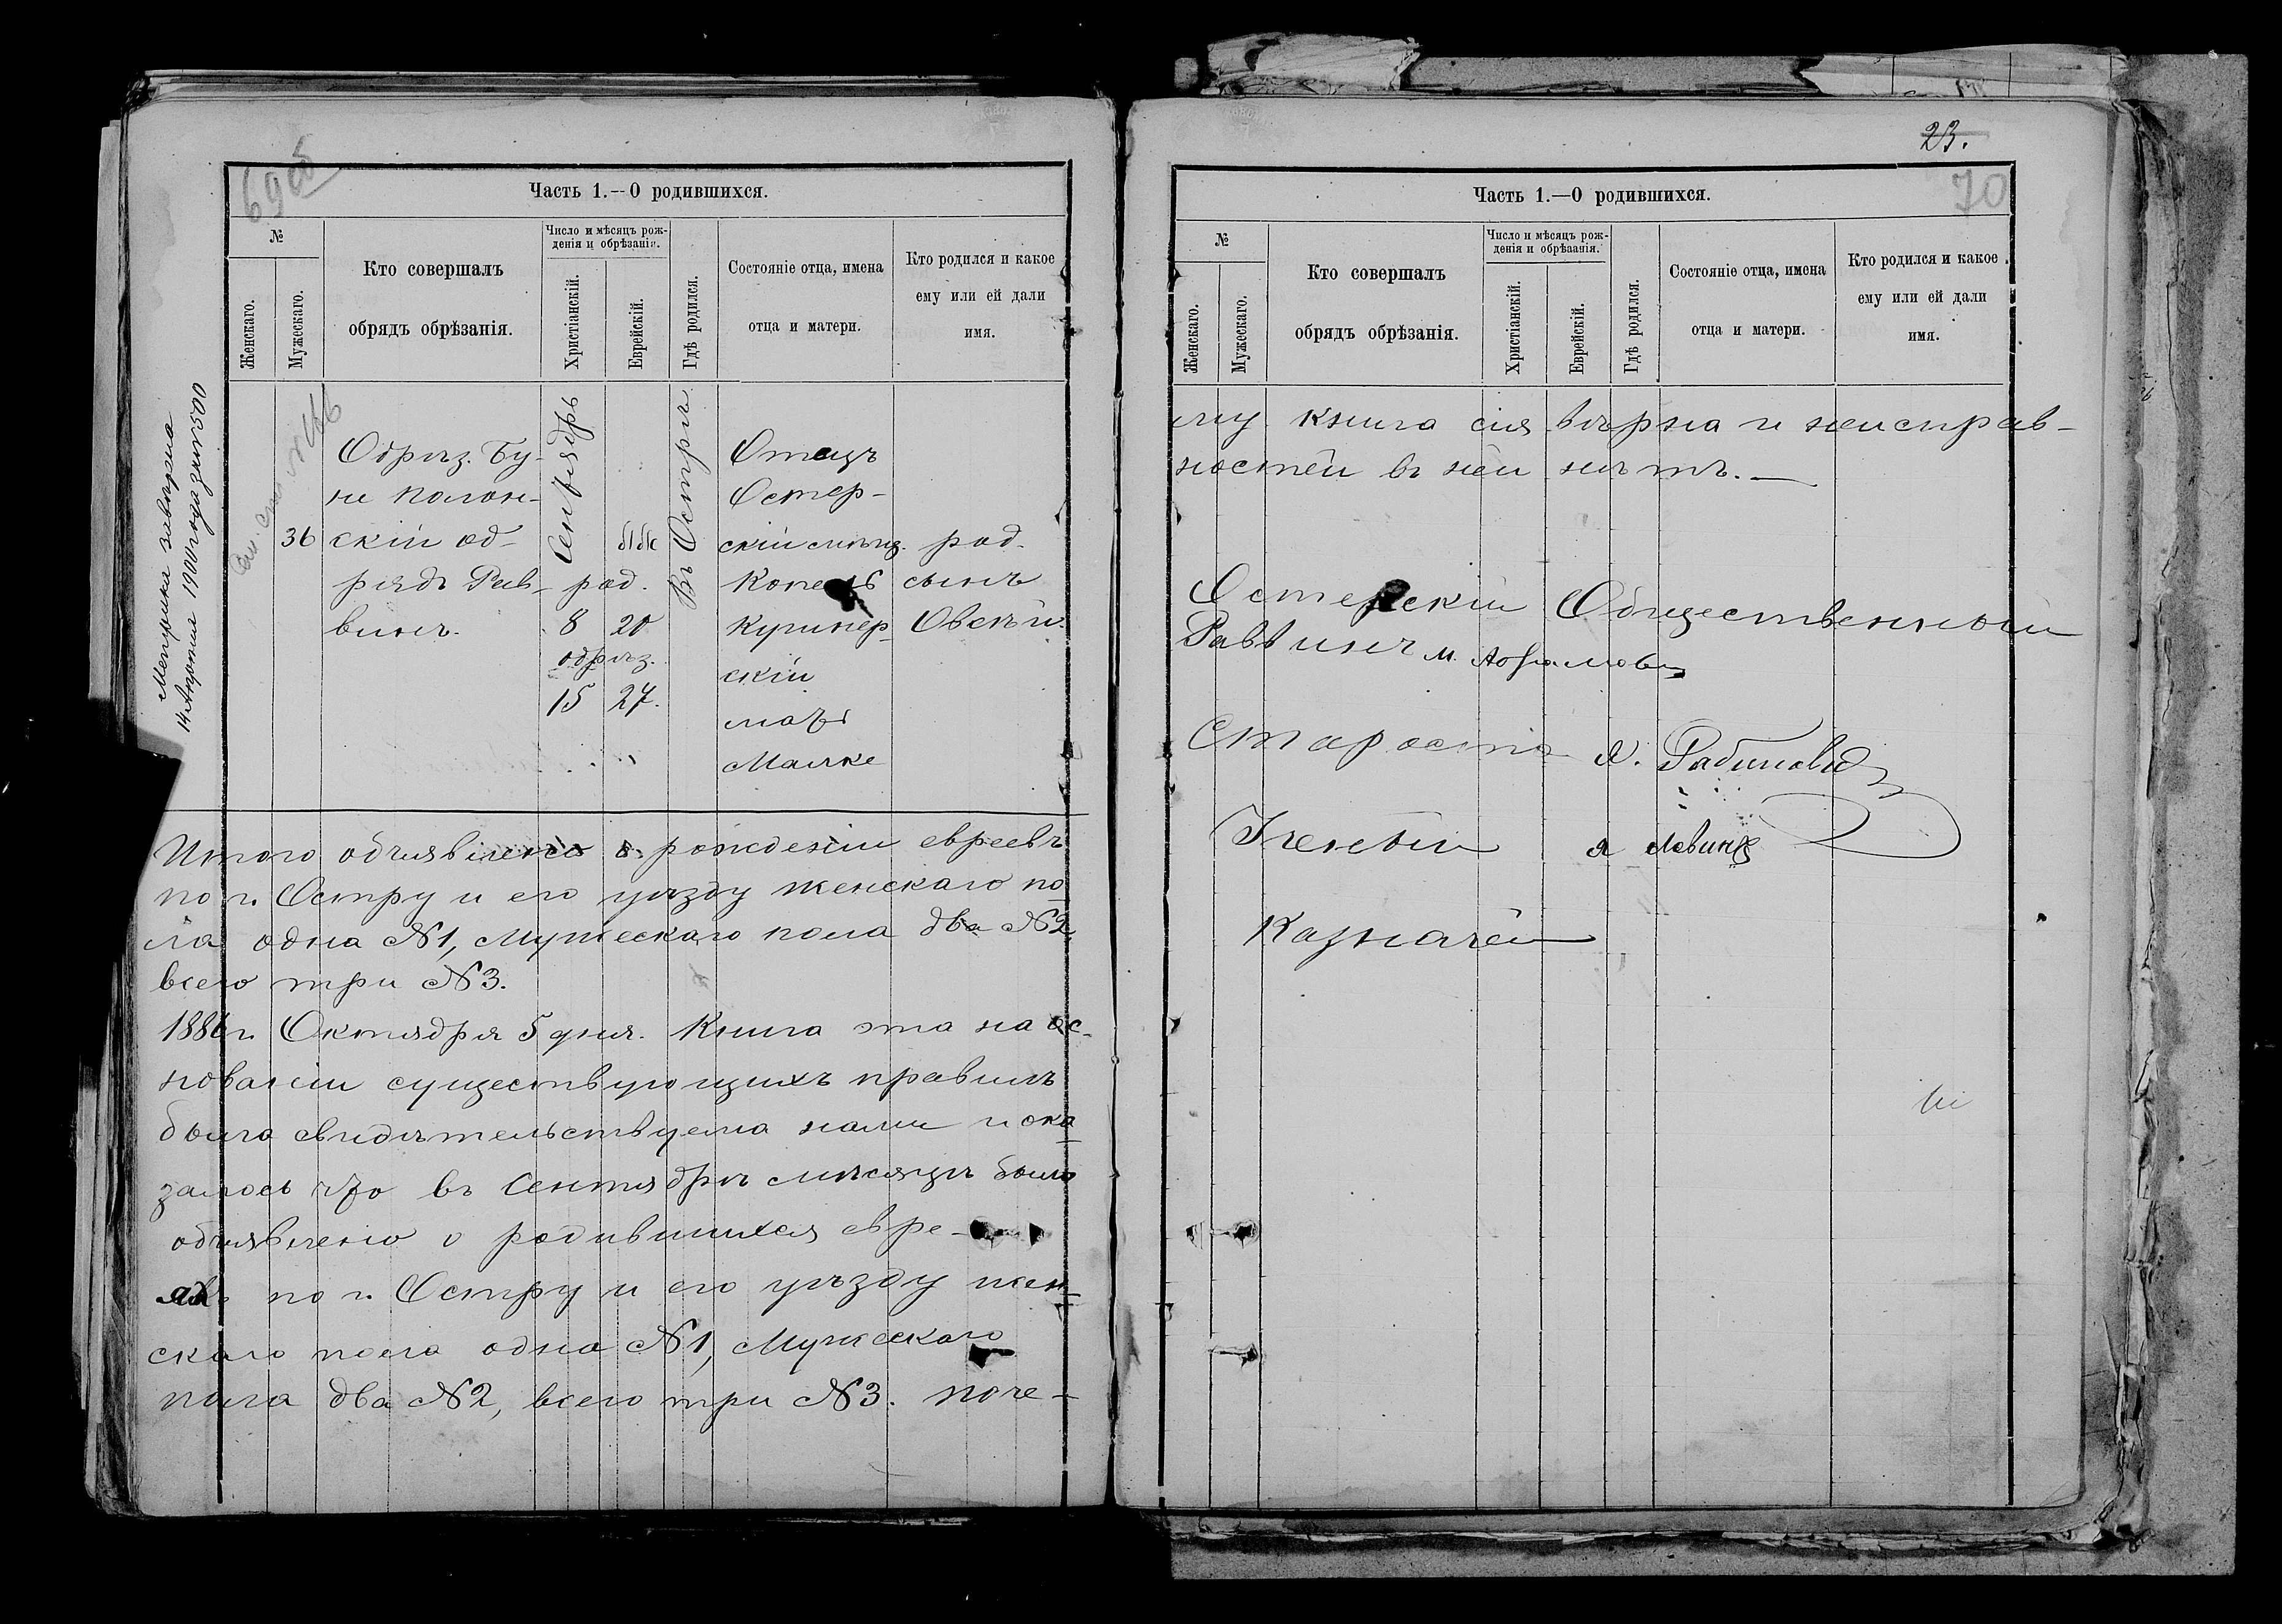 69 об
Часть 1.—О родившихся.
№
Женскаго.
Мужескаго.
Кто совершалъ
обрядъ обрѣзанія.
Число и мѣсяцъ рож-
денія и обрѣзанія.
Христіанскій.
Еврейскій.
Гдѣ родился.
Состояніе отца, имена
отца и матери.
Кто родился и какое
ему или ей дали
имя.
Метрика завѣрена
14 Апрѣля 1900 года за №500
36
Обрѣз. Бу-
не Полон-
скій об-
рядъ Рав-
винъ.
Сентябрь
род.
8 20
обрѣз.
15 27.
Въ Острѣ
Отецъ
Остер-
скій мѣщ.
Копель
Кушнер-
скій
мать
Малке
род.
сынъ
Овсѣй.
Итого объявлено о рожденіи евреевъ
по г. Остру и его уѣзду женскаго по-
ла одна №1, Мужескаго пола два №2
всего три №3.
1886 г. Октября 5 дня. Книга эта на ос-
нованіи существующихъ правилъ
была свидѣтельствуема нами и ока-
залось что въ Сентябрѣ мѣсяцѣ было
объявлено о родившихся евре-
яхъ по г. Остру и его уѣзду жен-
скаго пола одна №1, Мужескаго
пола два №2, всего три №3. поче-
23.
70
Часть 1.—О родившихся.
№
Женскаго.
Мужескаго.
Кто совершалъ
обрядъ обрѣзанія.
Число и мѣсяцъ рож-
денія и обрѣзанія.
Христіанскій.
Еврейскій.
Гдѣ родился.
Состояніе отца, имена
отца и матери.
Кто родился и какое
ему или ей дали
имя.
му книга сія вѣрна и неисправ-
ностей въ ней нѣтъ.—
Остерскій Общественный
Раввинъ М. Абрамовъ
Староста Я. Рабинович
Ученый Я Левинъ
Казначей